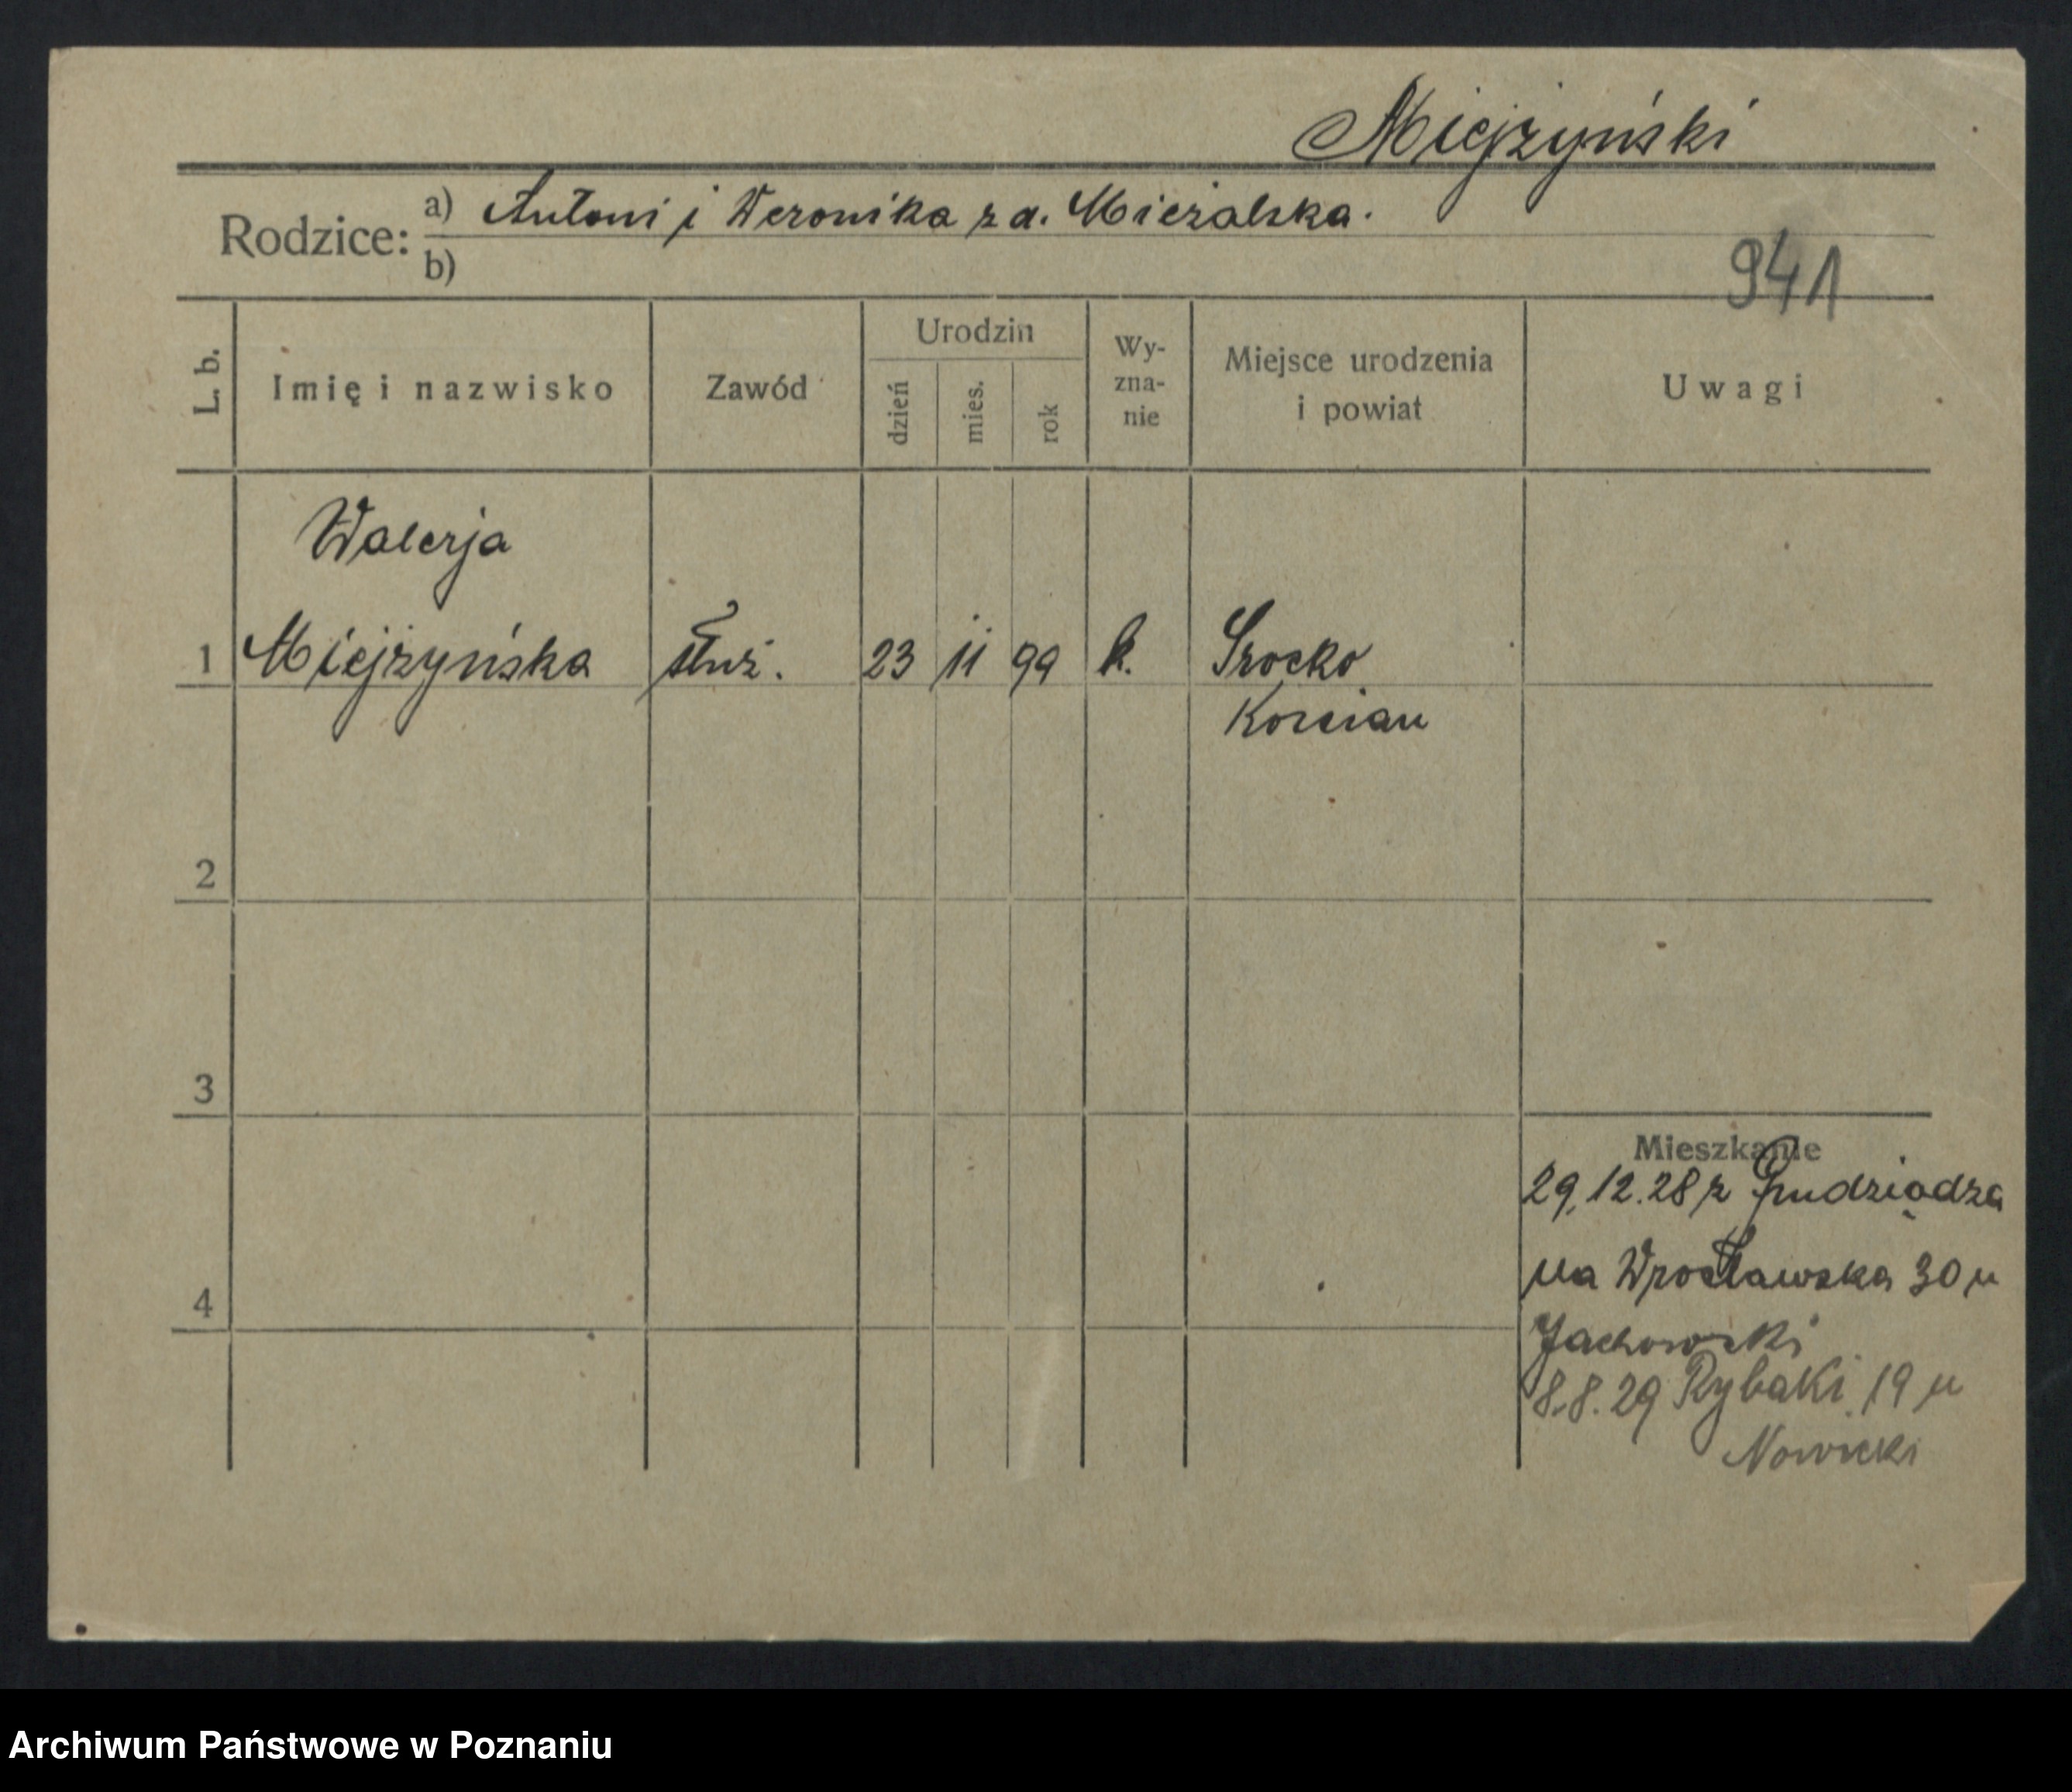 Miejżyński
Rodzice: a) Antoni i Weronika z d. Mieżalska.
b)
941
L. b.
Imię i nazwisko
Zawód
Urodzin
dzień
mies.
rok
Wy-
zna-
nie
Miejsce urodzenia
i powiat
Uwagi
Walerja
1 Miejżyńska służ. 23 11 99 k. Srocko
Kościan
2
3
Mieszkanie
29.12.28 z Grudziądza
na Wrocławska 30 u
4
Jachowski
8.8.29 Rybaki 19 u
Nowicki
Archiwum Państwowe w Poznaniu